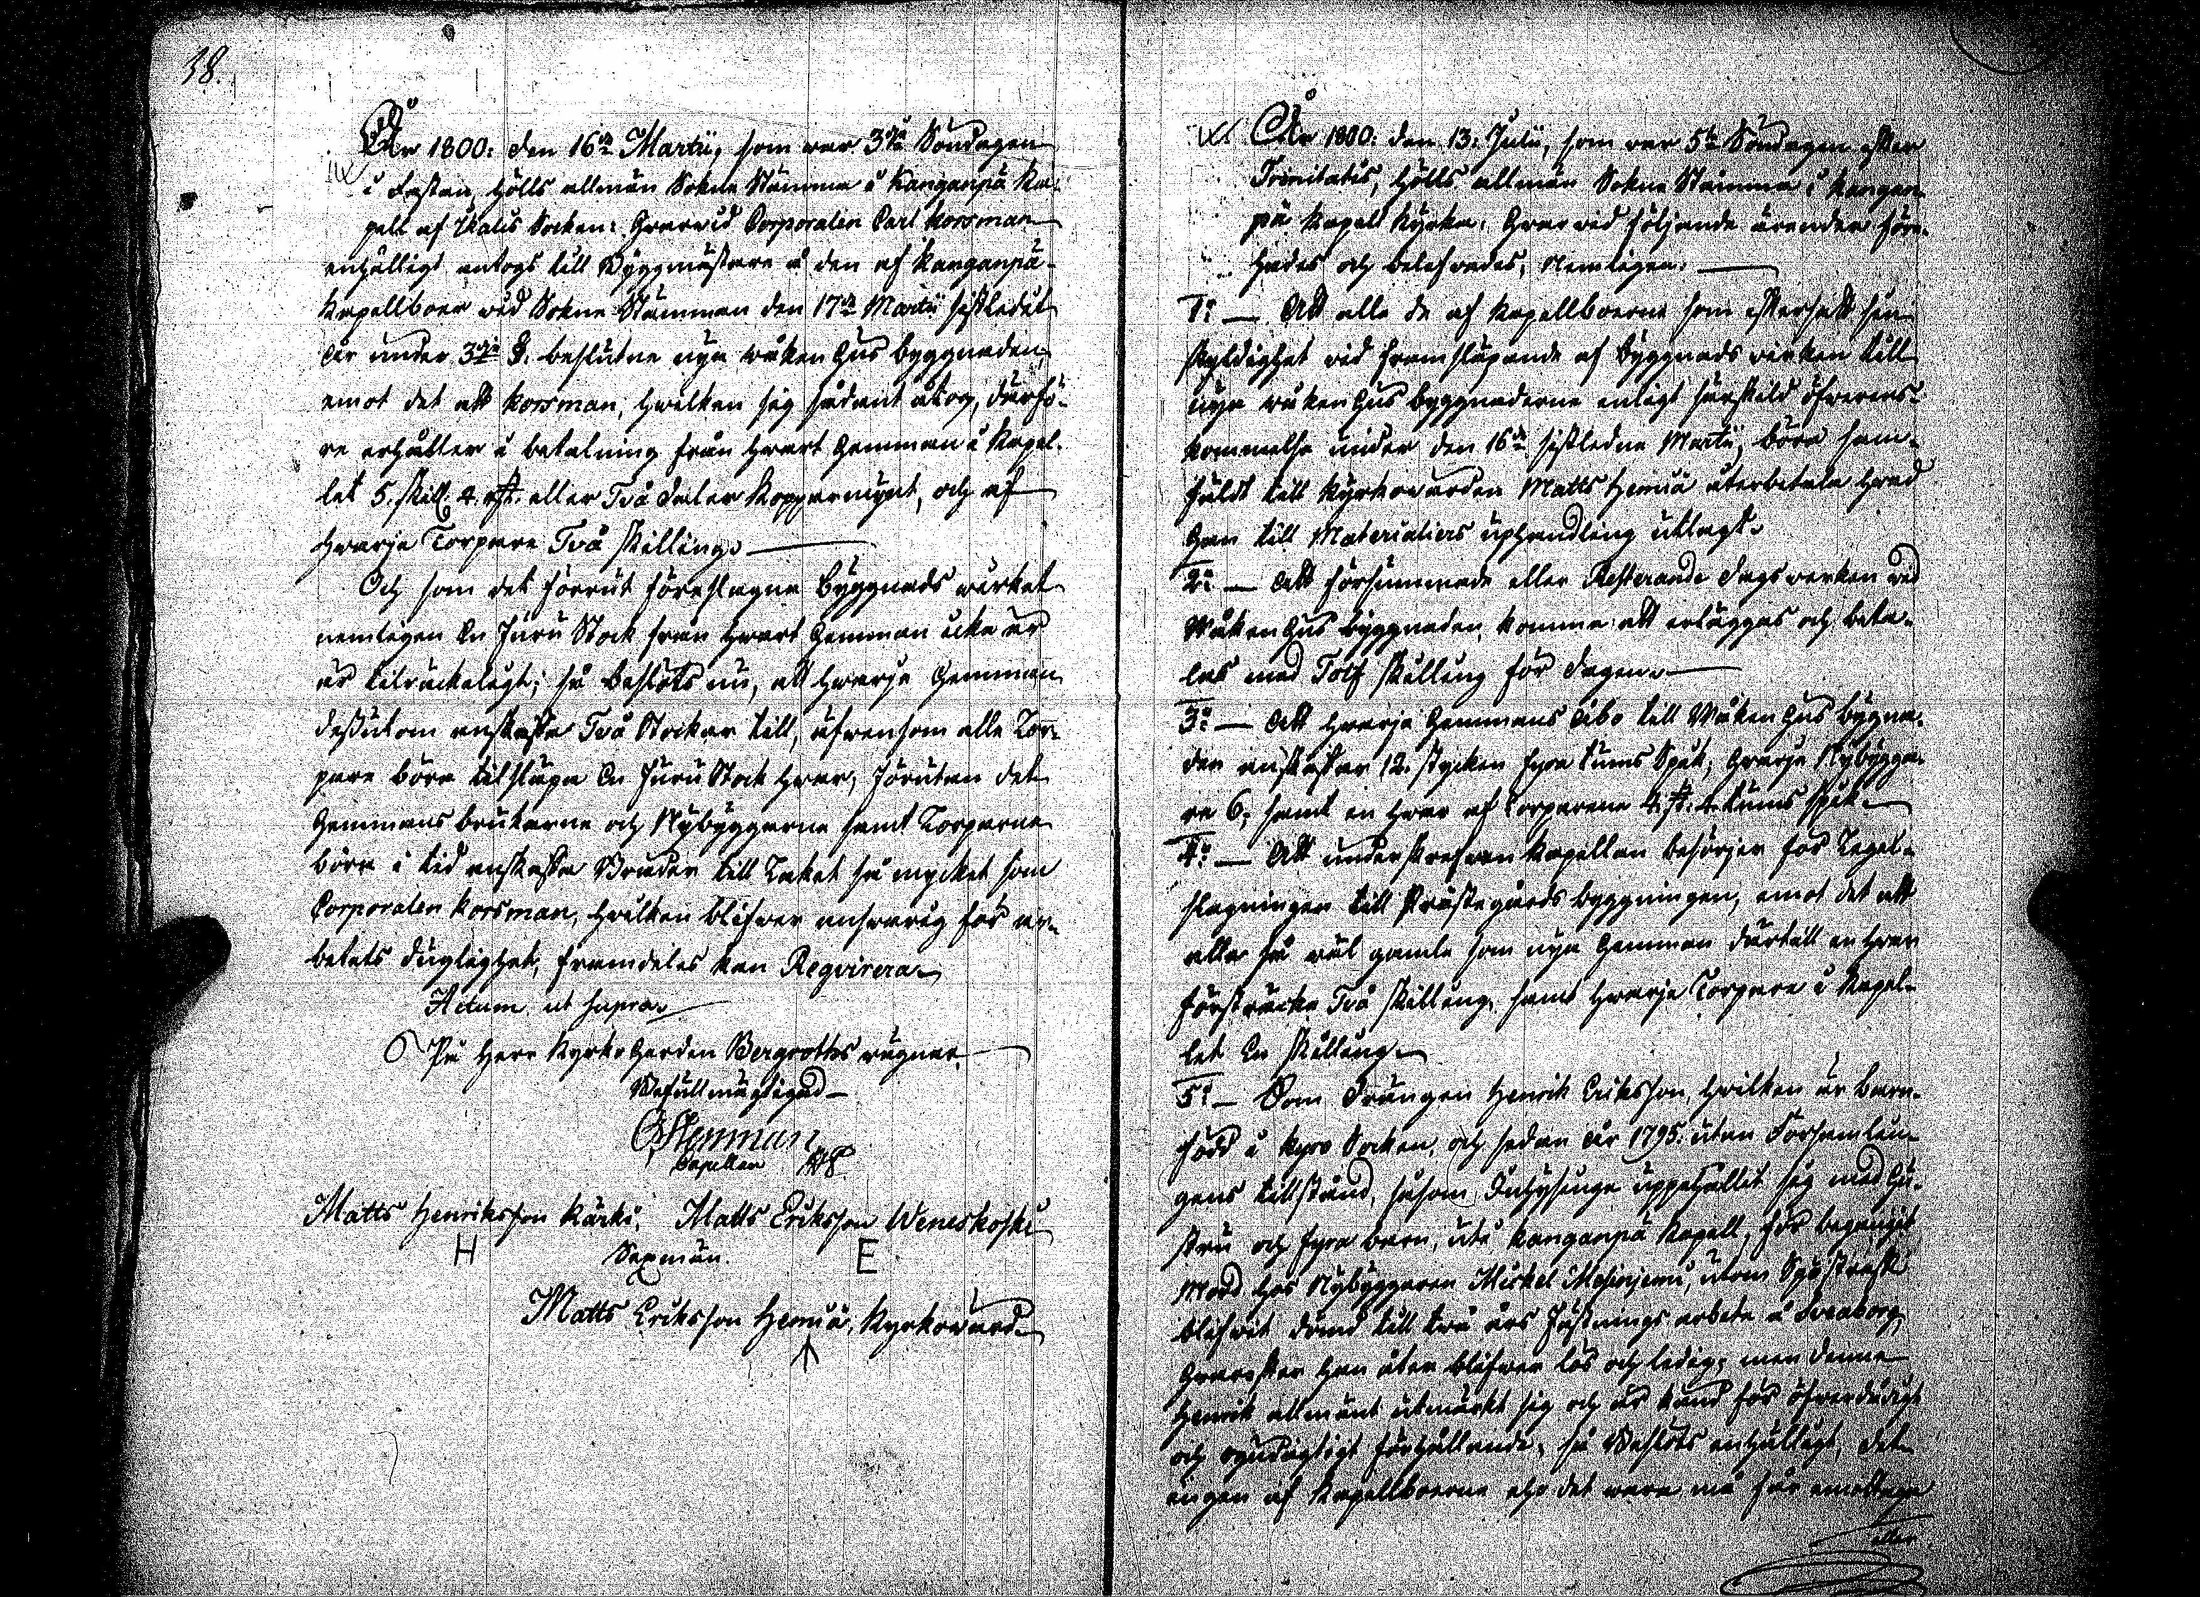 38.
År 1800: den 16de Martii, som war 3dje Söndagen
i Fastan, hölls allmän Sokne Stämma i Kanganpä Ka-
pell af Ikalis Socken: Hwarwid Corporalen Carl Korsman
enhälligt antogs till Byggmästare å den af Kanganpä
Kapellboer wid Sokne Stämman den 17de Martii sistledit
år under 3dje §. beslutne nya wåkenhus byggnaden,
emot det att Korsman, hwilken sig sådant åtog, därfö-
re erhåller i betalning från hwart Hemman i Kapel-
let 5. skill. 4. rst. eller Två daler Kopparmynt, och af
hwarje Torpare Två skilling.
Och som det förrut föreslagne byggnads wirket
nemligen En Furu Stock från hwart Hemman icke är
är tilräckeligt; så beslöts nu, att hwarje Hemman
dessutom anskaffa Två Stockar till, äfwensom alle Tor-
pare böra tilsläpa En Furu Stock hwar, förutan det
Hemmans brukarne och Nybyggarne samt Torparne
böra i tid anskaffa Bräder till Taket så mycket som
Corporalen Korsman, hwilken blifwer answarig för ar-
betets duglighet, framdeles kan Reqvirera.
Actum ut supra.
På Herr Kyrko Herden Bergroths wägnar
Befullmägtigad
Stenman
Capellan
Matts Henriksson Kärki, Matts Eriksson Weneskoski
H Sexmän. E
Matts Eriksson Hemiä, Kyrkowärd
År 1800: den 13: Julii, som war 5te Söndagen efter
Trinitatis, hölls allmän Sokne Stämma i Kangan-
pä Kapell Kyrka: Hwarwid följande ärender före-
hades och belefwades, Nemligen:
1o — Att alle de af Kapellboerne som eftersatt sin
skyldighet wid framsläpande af byggnads wirken till
nya wåkenhus byggnaderne enligt särskild öfwerens-
kommelse under den 16de sistledne Martii, böra sam-
fäldt till Kyrkowärden Matts Hemiä återbetala hwad
han till Materialiers uphandling utlagt.
2o — Att försummade eller Resterande dagswerken wid
Wåkenhus byggnaden, komma att erläggas och beta-
las med Tolf skilling för dagen.
3o — Att hwarje Hemmans Åbo till Wåkenhus bygna-
den anskaffar 12. stycken fyra tums Spik, hwarje Nybygga-
re 6, samt en hwar af Torparene 4. st. 4. tums spik.
4o — Att underskrefwen Kapellan besörjer för Tegel-
slagningen till Prästegårds byggningen, emot det att
alle så wäl gamle som nya Hemman därtill en hwar
försträcka Två skilling, samt hwarje Torpare i Kapel-
let En skilling.
5o — Som Drängen Henrik Eriksson, hwilken är barn-
född i Kyro Socken, och sedan år 1795. utan Församlin-
gens tillstånd, såsom Inhysinge uppehållit sig med Hu-
stru och fyra barn, uti Kanganpä Kapell, för begångit
Mord hos Nybyggaren Mickel
blifwit dömd till två års Fästnings arbete å Sveaborg,
hwarefter han åter blifwer lös och ledig; men denne
Henrik allmänt utmärkt sig och är känd för öfwerdådigt
och ogudagtigt förhållande, så Beslöts enhälligt, det
ingen af Kapellboerne eho det wara må får emottaga
eller